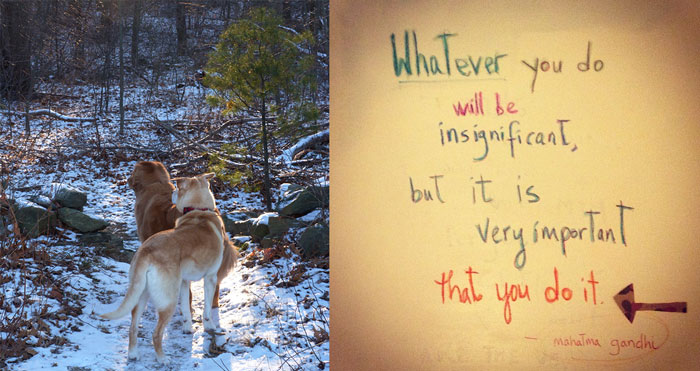 Whatever you do
will be
insignificant,
but it is
very important
that you do it.
- mahatma gandhi